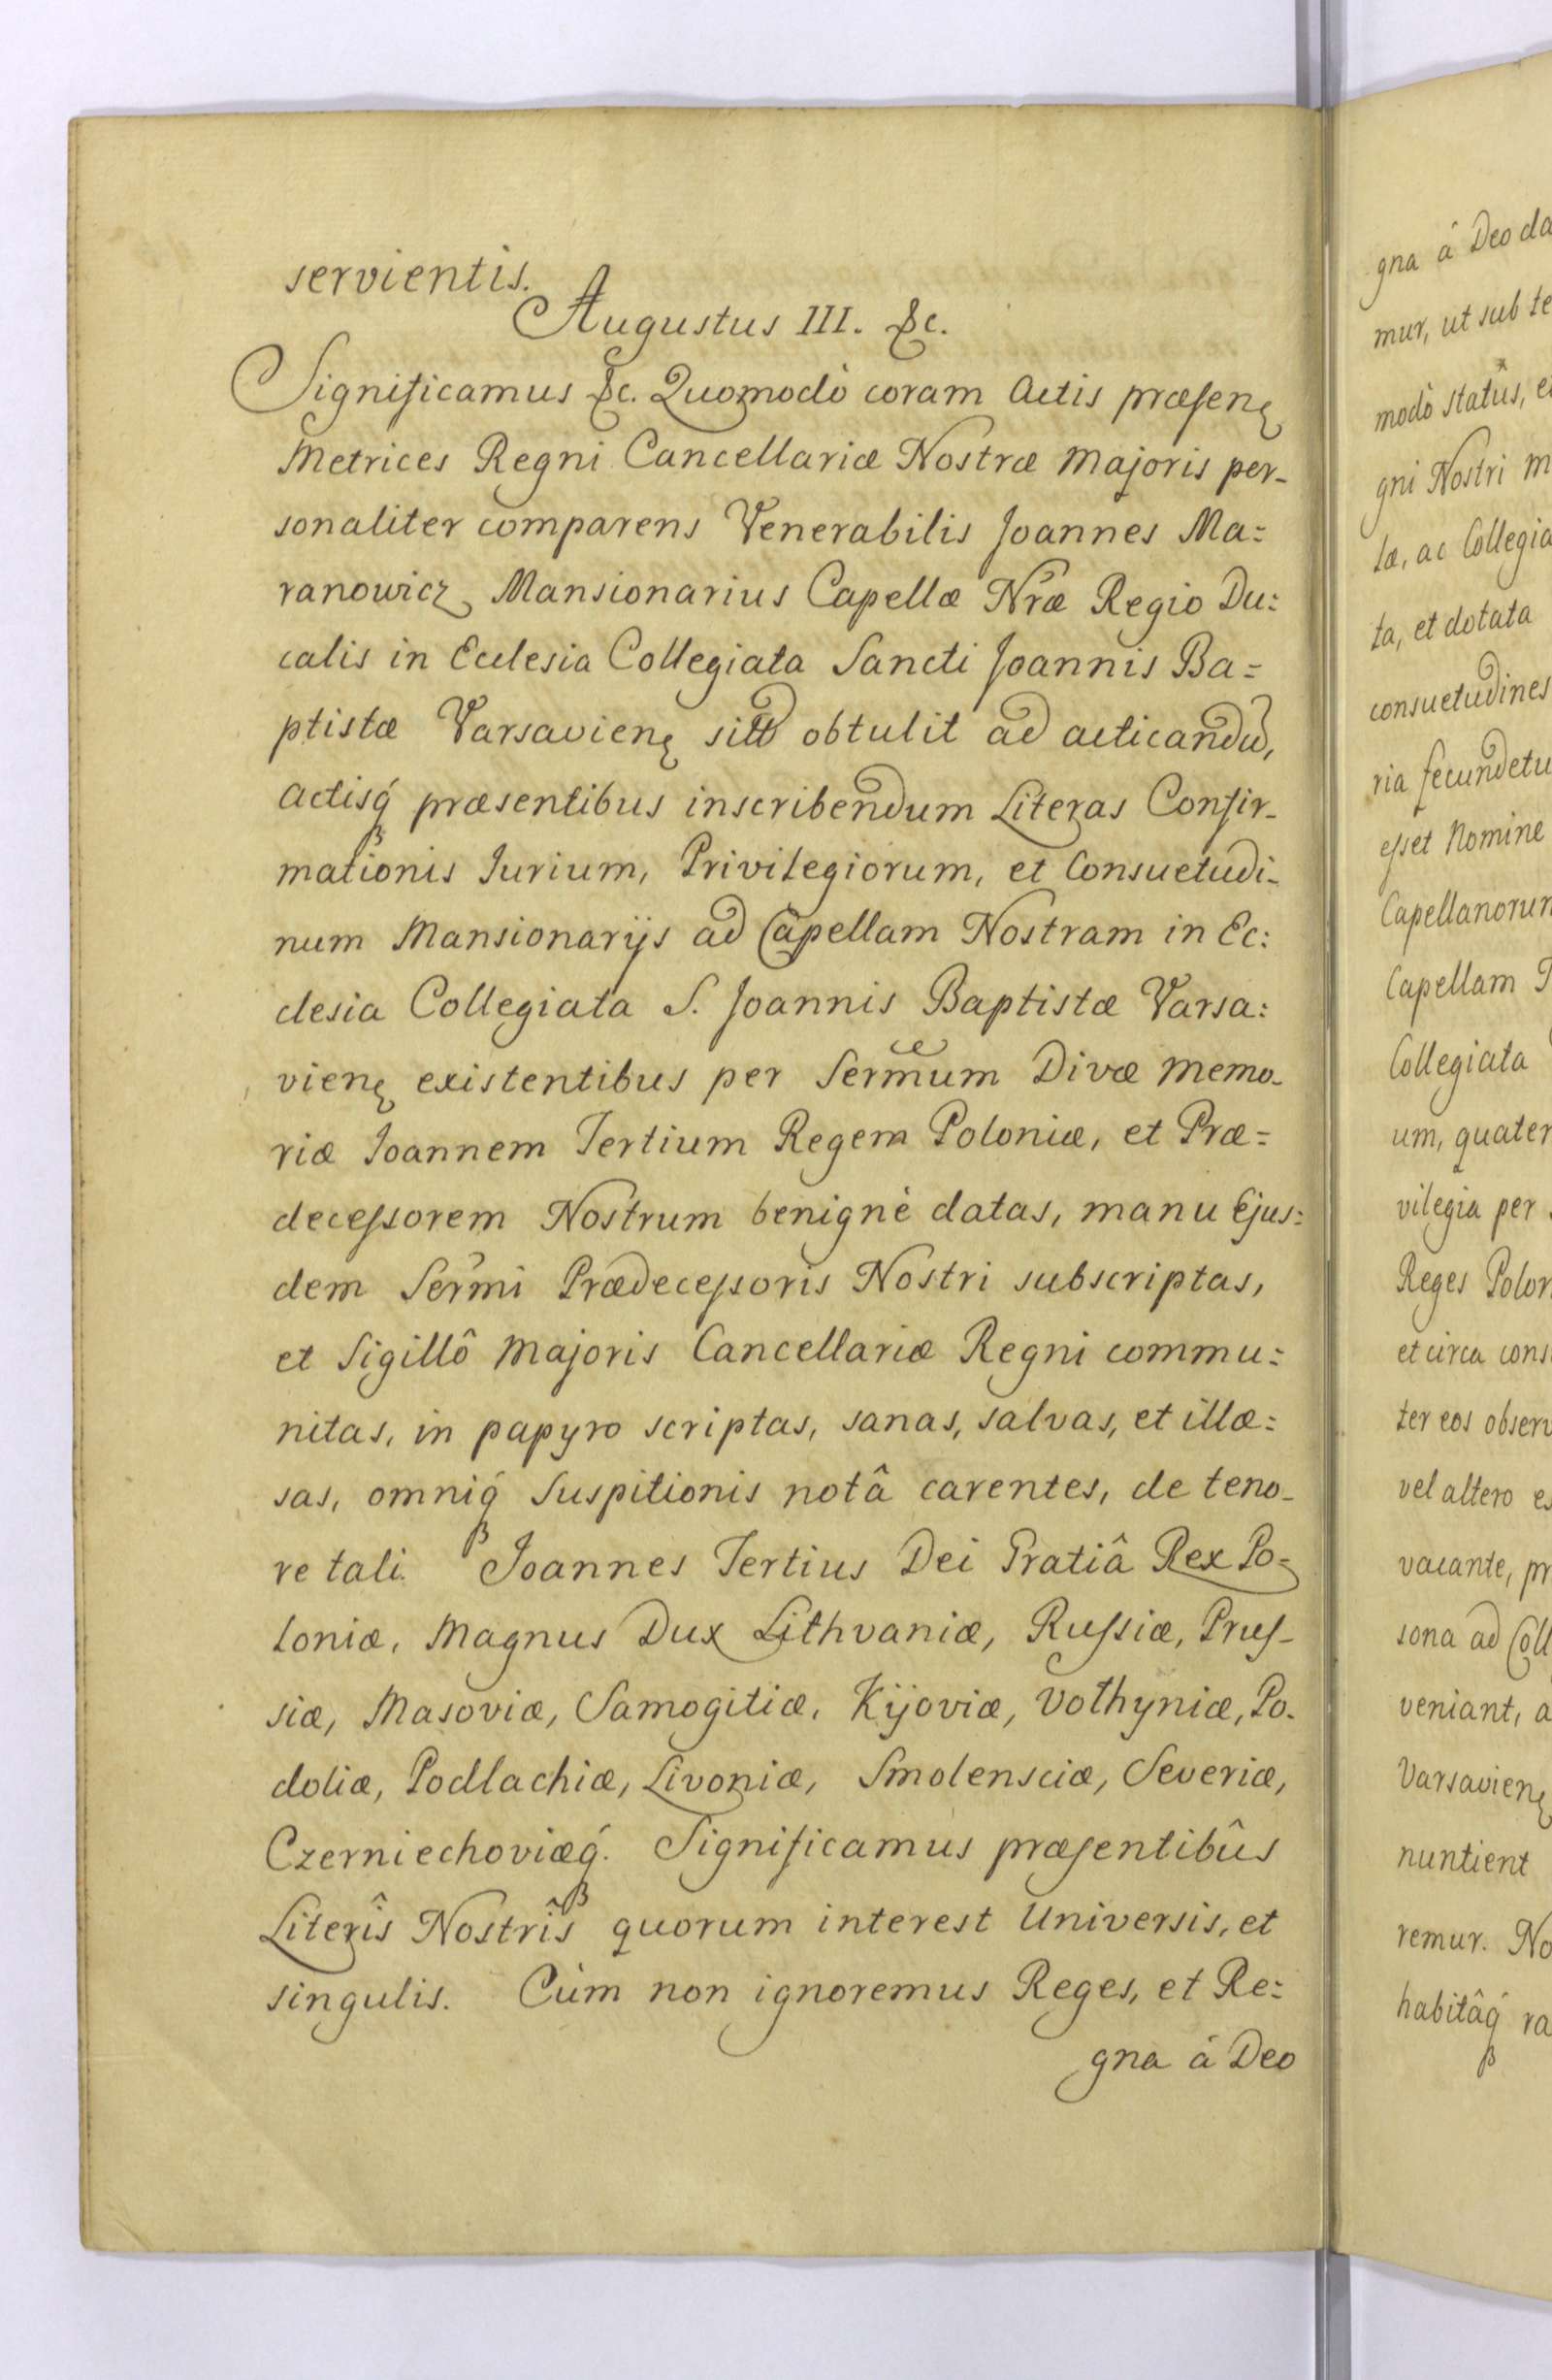 servientis.
Augustus III. &c.
Significamus &c. Quomodò coram Actis præsenę
Metrices Regni Cancellariæ Nostræ Majoris per-
sonaliter comparens Venerabilis Joannes Ma=
ranowicz Mansionarius Capellæ Nræ Regio Du:
calis in Ecclesia Collegiata Sancti Joannis Ba=
ptistæ Varsavienę obtulit ad acticandū,
Actisq́ præsentibus inscribendum Literas Confir-
mationis Iurium, Privilegiorum, et Consuetudi-
num Mansionarijs ad Capellam Nostram in Ec:
clesia Collegiata S. Joannis Baptistæ Varsa:
vienę existentibus per Sermum Divæ Memo-
riæ Joannem Tertium Regem Poloniæ, et Præ=
decessorem Nostrum benignè datas, manu Ejus=
dem Sermi Prædecessoris Nostri subscriptas,
et Sigillô Majoris Cancellariæ Regni commu=
nitas, in papyro scriptas, sanas, salvas, et illæ=
sas, omniq́ Suspitionis notâ carentes, de teno-
re tali. Joannes Tertius Dei Gratiâ Rex Po=
loniæ, Magnus Dux Lithvaniæ, Russiæ, Prus-
siæ, Masoviæ, Samogitiæ, Kijoviæ, Volhyniæ, Po-
doliæ, Podlachiæ, Livoniæ, Smolensciæ, Severiæ,
Czerniechoviæq́. Significamus præsentibûs
Literîs Nostrîs quorum interest Universis, et
singulis. Cùm non ignoremus Reges, et Re=
gna á Deo
gna â Deo da
mur, ut sub te
modò statûs, e
gni Nostri M
læ, ac Collegia
ta, et dotata
consuetudines
ria secundetu
esset Nomine
Capellanorum
Capellam
Collegiata
um, quater
vilegia per
Reges Polon
et circa cons
ter eos observ
vel altero es
vacante, pr
sona ad Coll
veniant, a
Varsavienę
nuntient
remur. No
habitâq́ ra